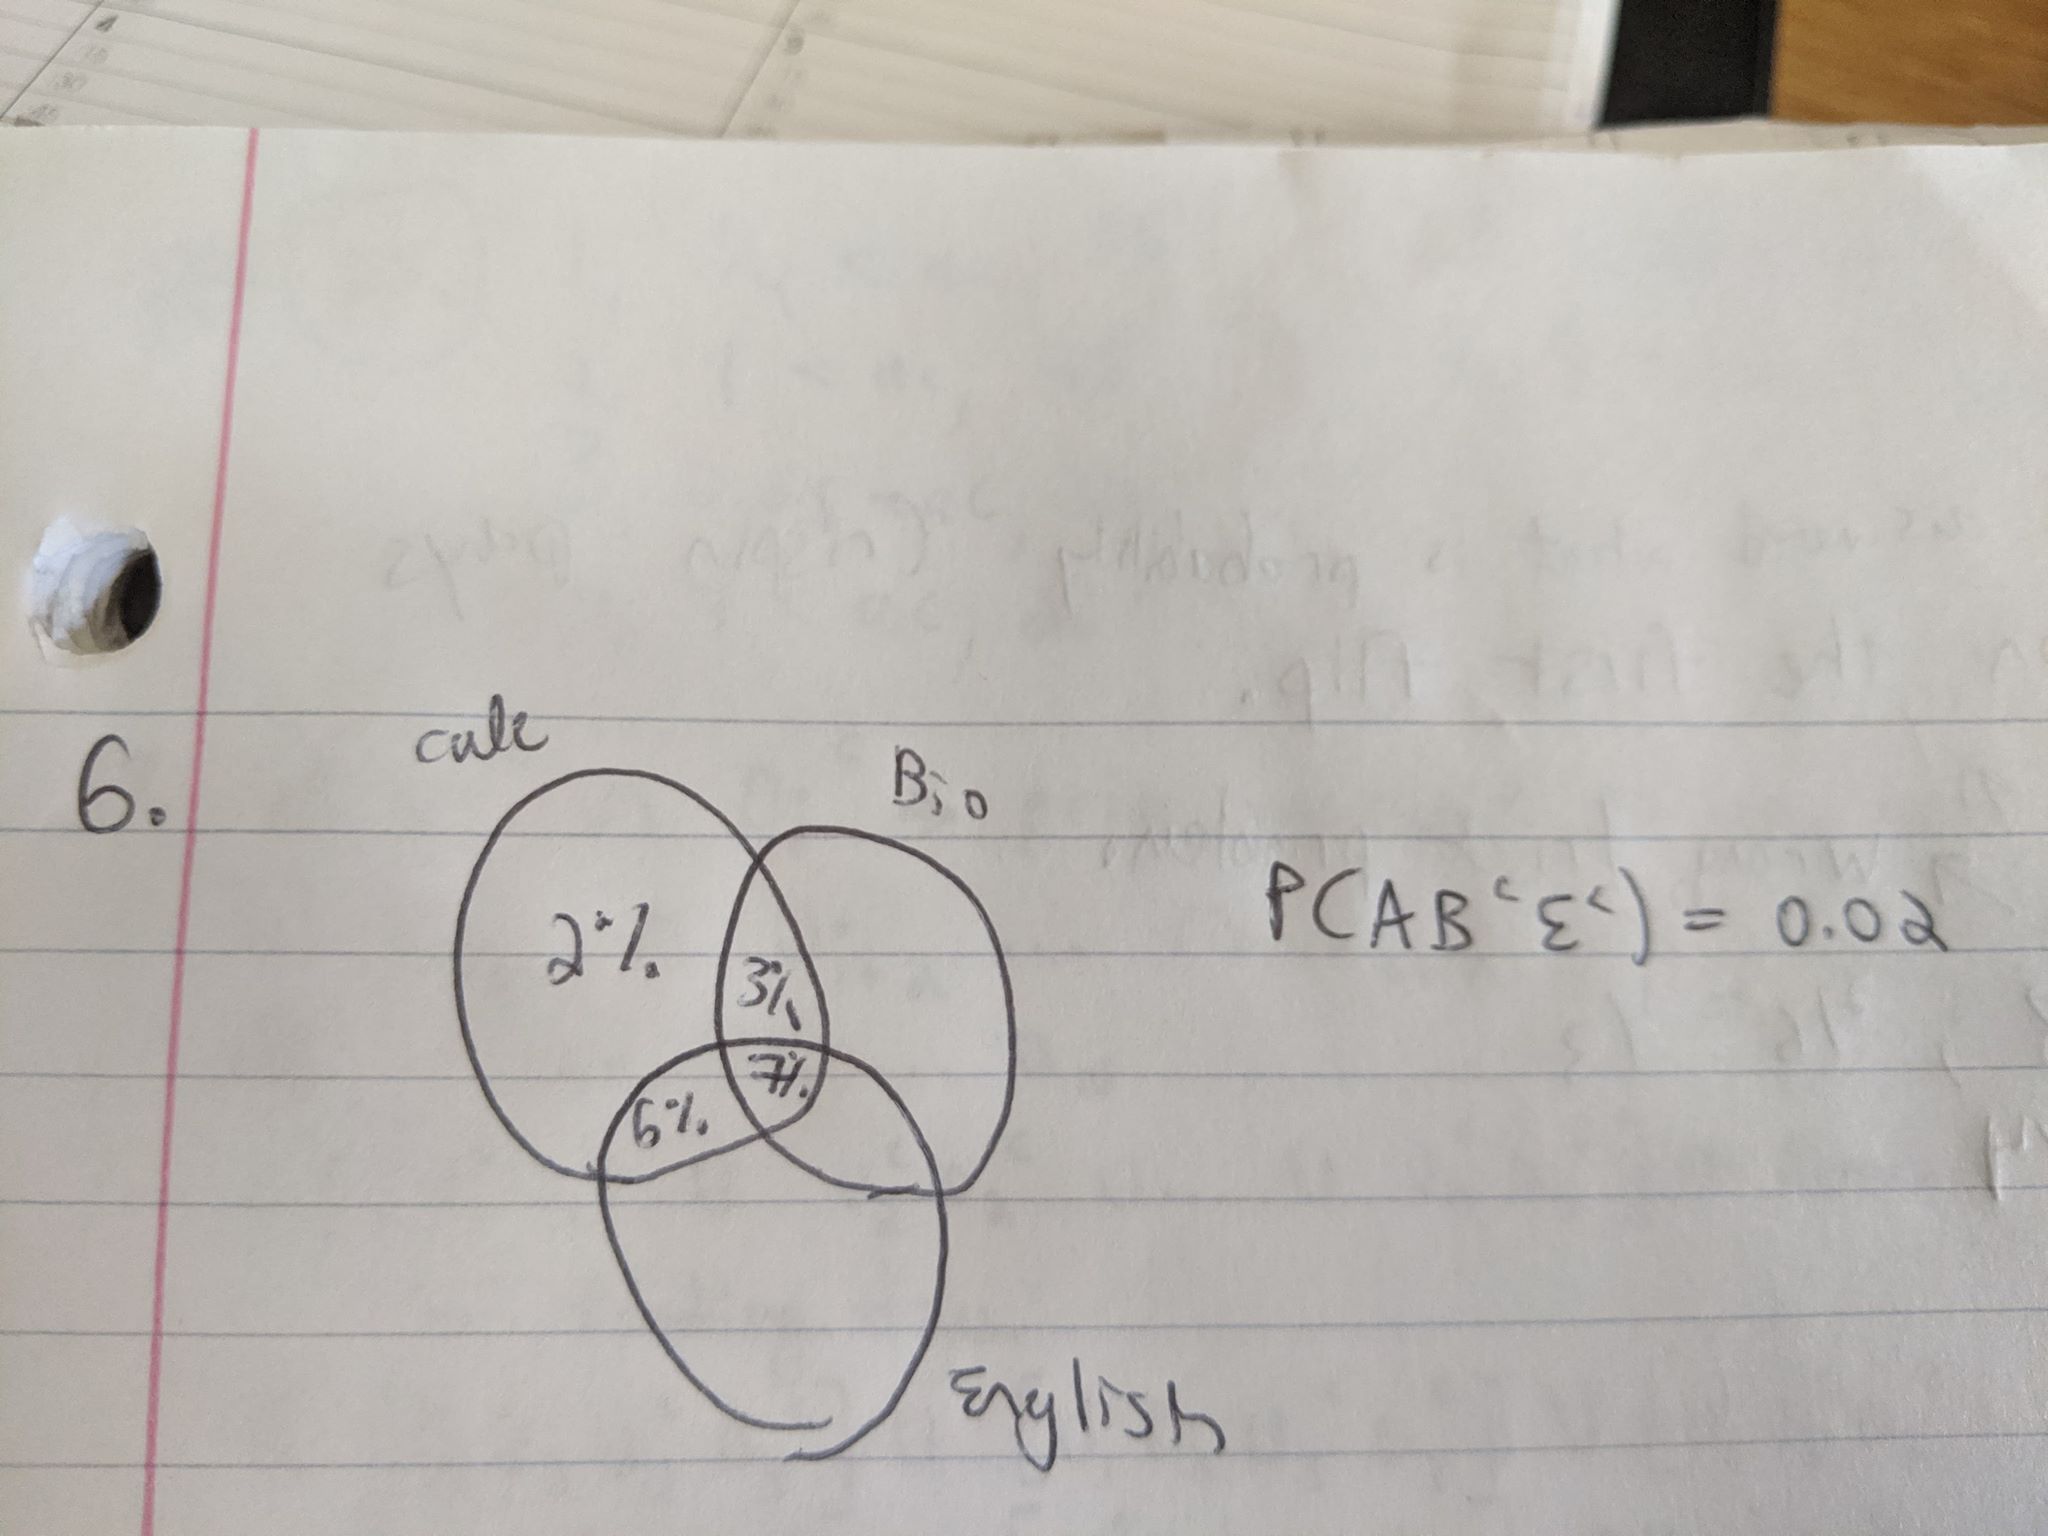 6.
calc
Bio
2%
3%
7%
6%
English
P(ABᶜEᶜ) = 0.02